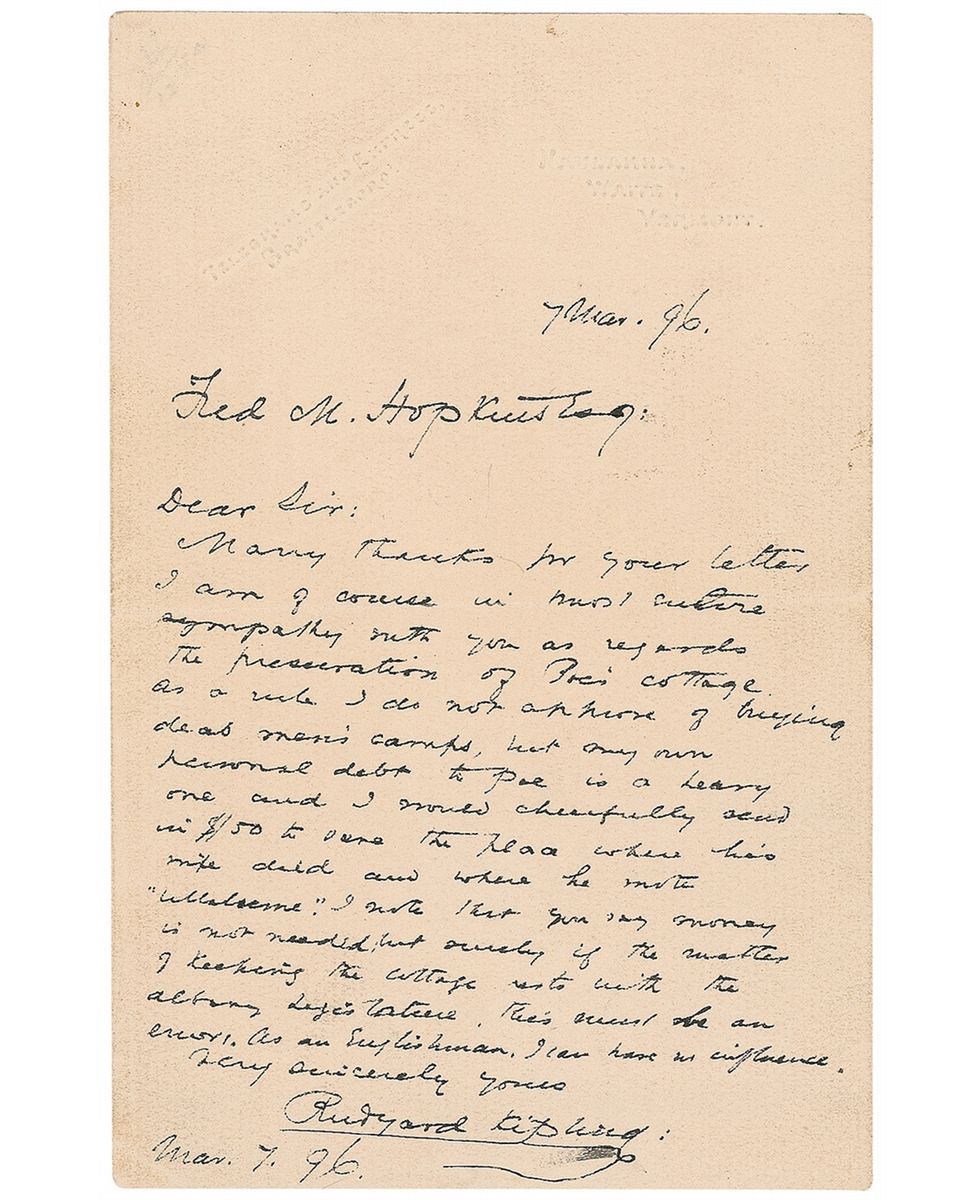 Naulakha,
Waite,
Vermont.
7 Mar. 96.
Fred M. Hopkins Esq:
Dear Sir:
Many thanks for your letter
I am of course in most entire
sympathy with you as regards
the preservation of Poe's cottage.
As a rule I do not approve of buying
dead men's camps, but my own
personal debt to Poe is a heavy
one and I would cheerfully send
in $150 to save the place where his
wife died and where he wrote
"Ulalume". I note that you say money
is not needed, but surely if the matter
of keeping the cottage rests with the
Albany Legislature, this must be an
error. As an Englishman, I can have no influence.
Very sincerely yours
Rudyard Kipling:
Mar. 7. 96.